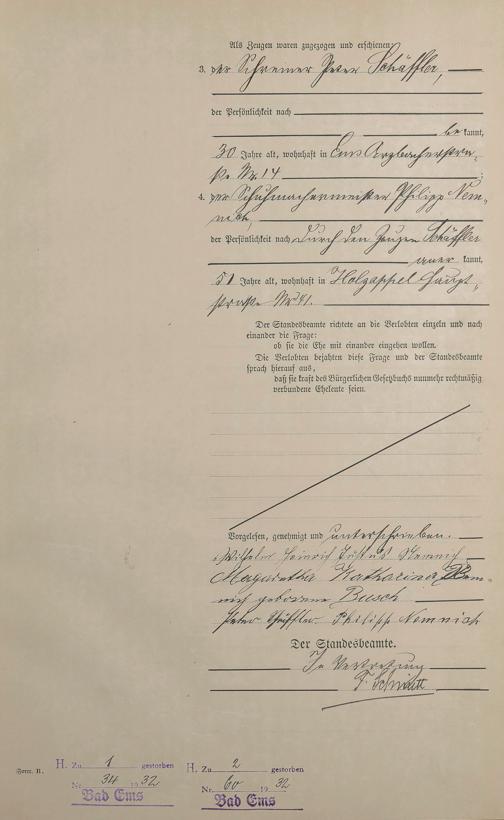 Als Zeugen waren zugezogen und erschienen:
3. der Schreiner Peter Schäffler,
der Persönlichkeit nach
be kannt,
30 Jahre alt, wohnhaft in Ems Arzbacherstra-
ße Nr. 14
4. der Schuhmachermeister Philipp Nem-
nich,
der Persönlichkeit nach durch den Zeugen Schäffler
aner kannt,
51 Jahre alt, wohnhaft in Holzappel Haupt-
straße Nr. 41.
Der Standesbeamte richtete an die Verlobten einzeln und nach
einander die Frage:
ob sie die Ehe mit einander eingehen wollen.
Die Verlobten bejahten diese Frage und der Standesbeamte
sprach hierauf aus,
daß sie kraft des Bürgerlichen Gesetzbuchs nunmehr rechtmäßig
verbundene Eheleute seien.
Vorgelesen, genehmigt und unterschrieben.
Wilhelm Heinrich Nemnich
Margaretha Katharina Nem-
nich geborene Busch
Peter Schäffler Philipp Nemnich
Der Standesbeamte.
In Vertretung
Schmitt
Form. B.
H. Zu 1 gestorben
Nr. 34 1932
Bad Ems
H. Zu 2 gestorben
Nr. 60 1932
Bad Ems